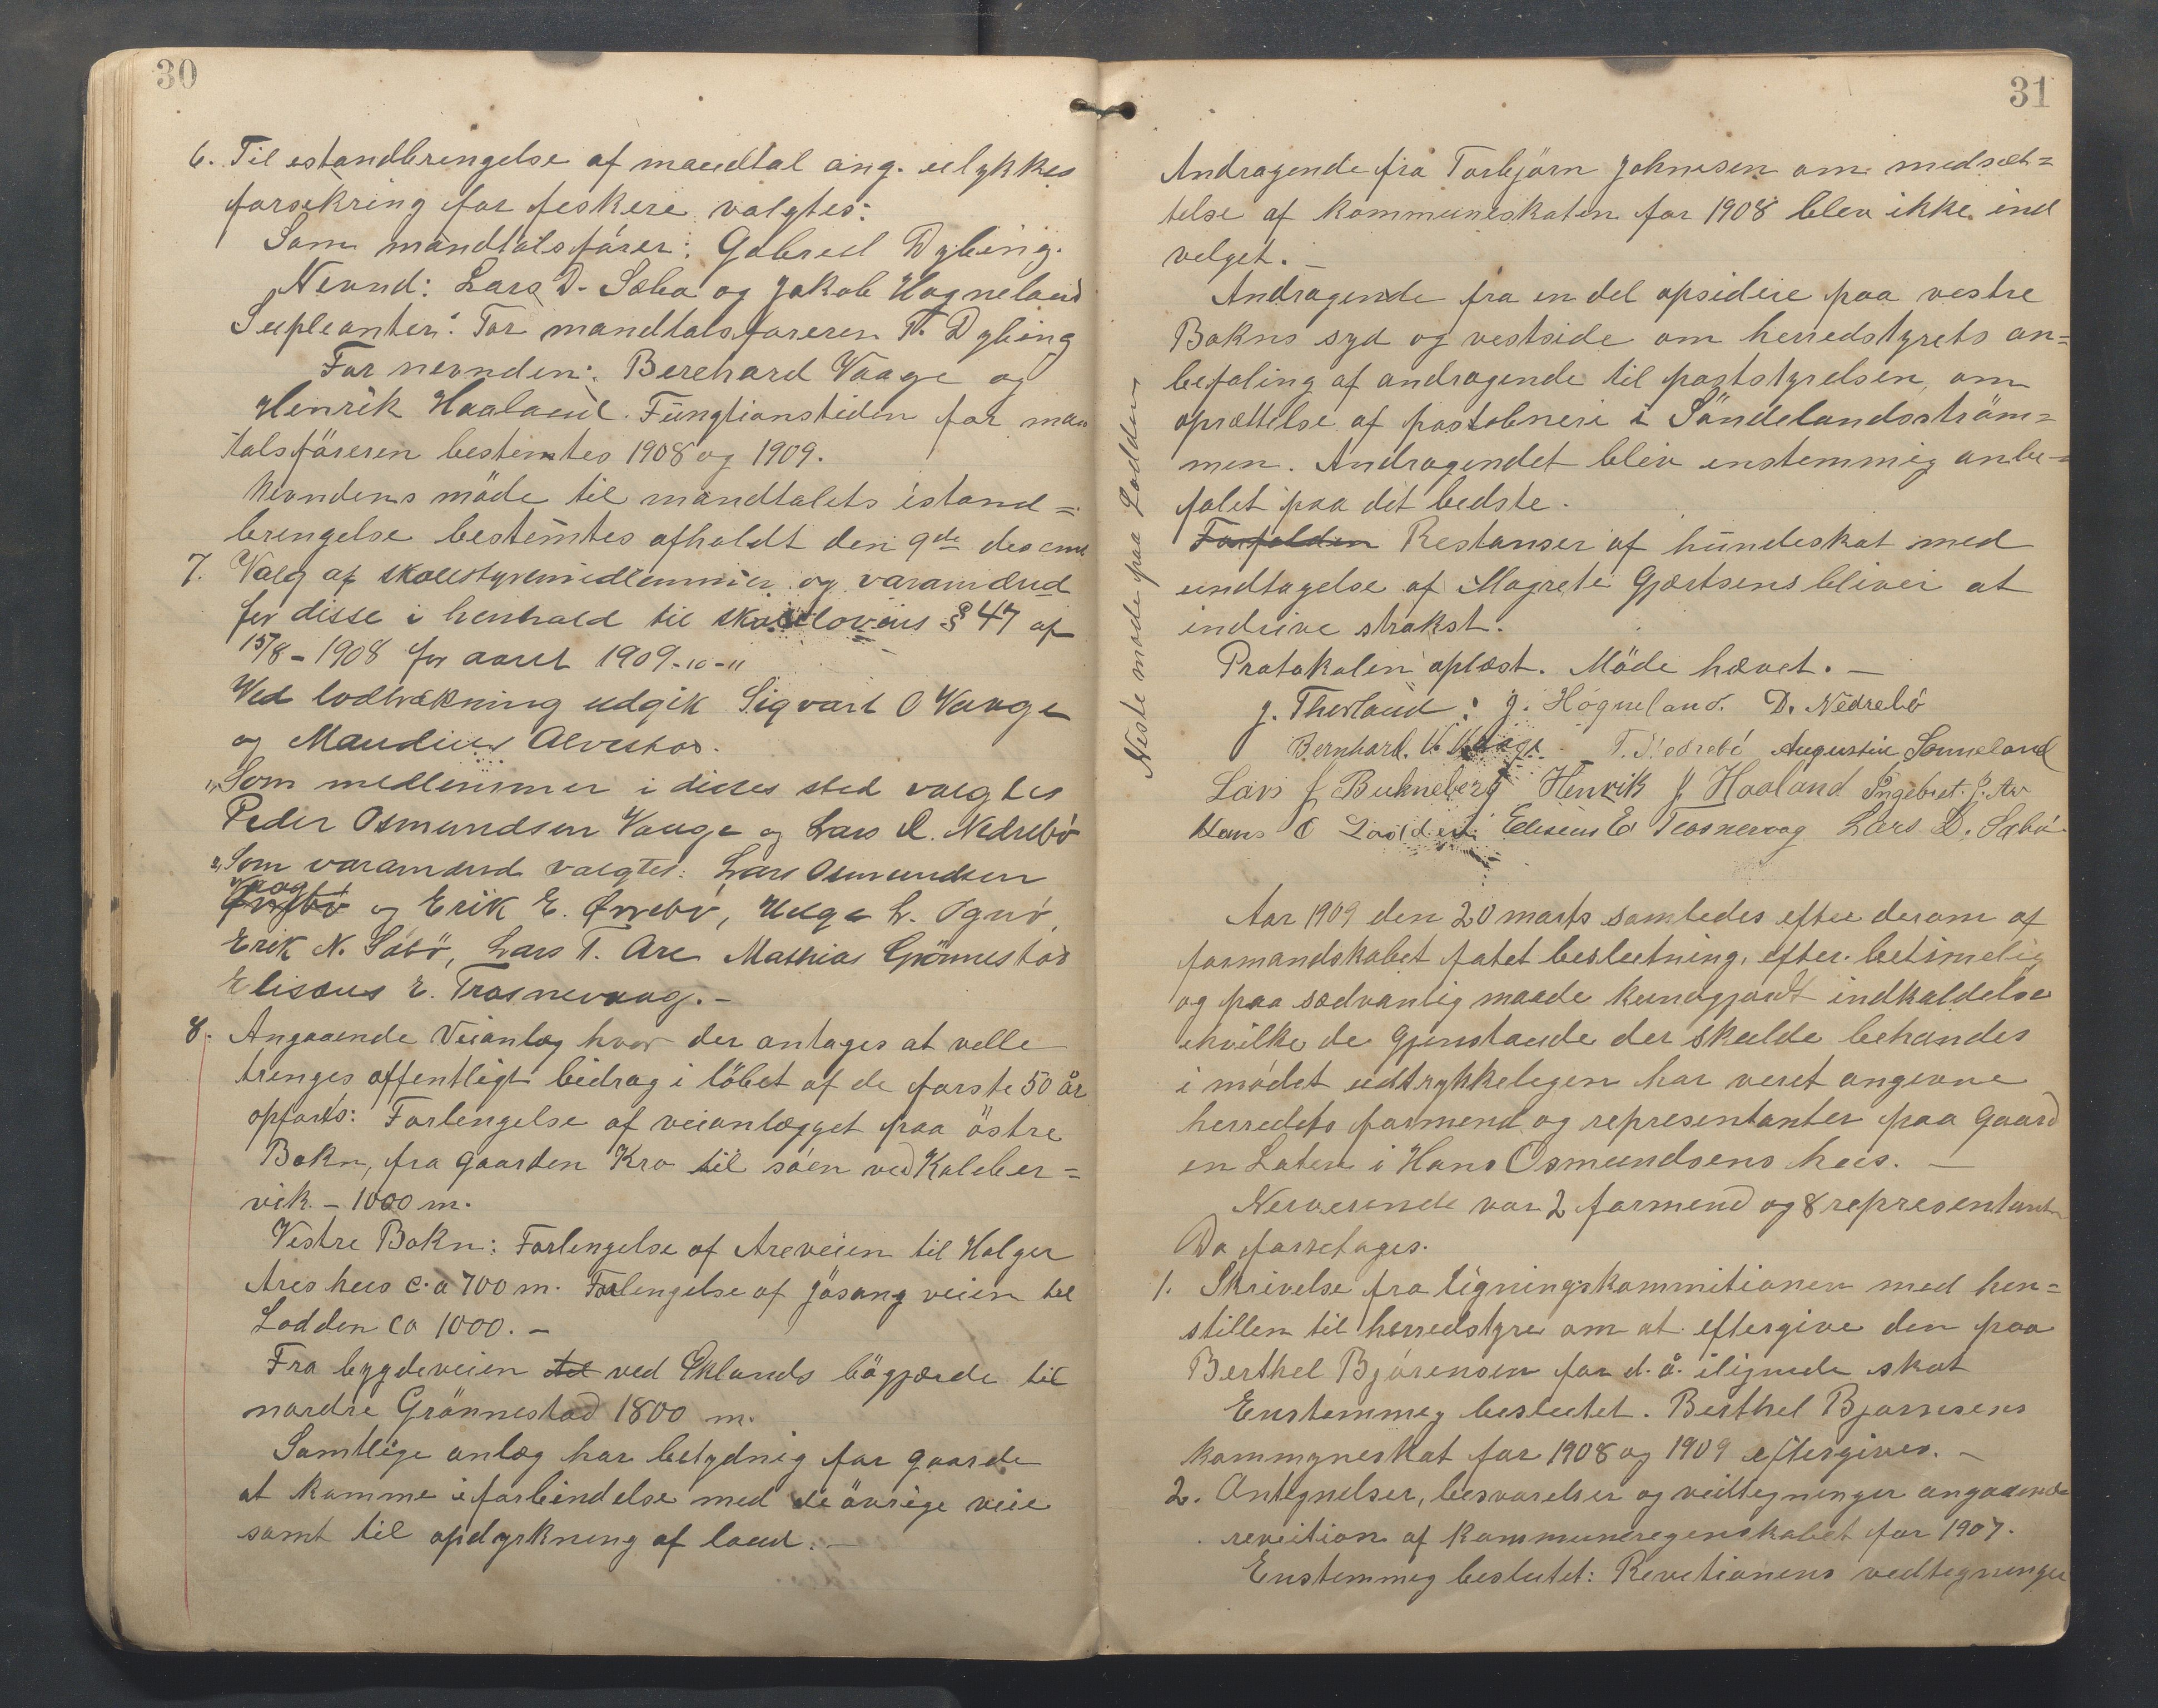 30
6. Til istandbringelse af mandtal ang. ulykkes
forsekring for feskere valgtes:
Som mandtalsfører: Gabriel Dybing.
Nevnd: Lars D. Sæbø og Jakob Hogneland
Supleanter: For mandtalsføreren T. Dybing
For nevnden: Bernhard Vaage og
Henrik Haaland. Fungtionstiden for man
talsføreren bestemtes 1908 og 1909.
Nevndens möde til mandtalets istand=
bringelse bestemtes afholdt den 9de des
7. Valg af skolestyremedlemmer og varamænd
for disse i henhold til skolelovens § 47 af
15/8 - 1908 for aaret 1909-10-11
Ved lodtrækning udgik Sigvart O Vaage
og Maudius Alvestad.
1, Som medlemmer i disses sted valgtes
Peder Osmundsen Vaage og Lars L. Nedrebö
2, Som varamænd valgtes: Lars Osmundsen
Vaage
og Erik E. Ørrebö, Helge L. Ognö,
Erik N. Säbö, Lars T. Are Mathias Grönnestad
Elisæus E. Trosnevaag. -
8. Angaaende Veianlæg hvor der antages at velle
trenges offentligt bidrag i löbet af de første 50 år
opførts: Forlengelse af veianlægget paa östre
Bokn, fra gaarden Kro til söen ved Kalber=
vik - 1000 m.
Vestre Bokn: Forlengelse af Areveien til Holger
Ares hus c.a 700 m. Forlengelse af Jösang veien til
Lodden ca 1000. -
Fra bygdeveien til ved Eklands bögjærde til
nordre Grönnestad 1800 m.
Samtlige anlæg har betydnig for gaarde
at komme i forbindelse med de övrige veie
samt til opdyrkning af land. -
31
Neste möde paa Lodden
Andragende fra Torbjörn Johnesen om nedsæt=
telse af kommuneskaten for 1908 blev ikke ind
velget. -
Andragende fra en del opsidere paa vestre
Bokns syd og vestside om herredstyrets an=
befaling af andragende til poststyrelsen, om
oprættelse af postobneri i Söndelandsström=
men. Andragendet blev enstemmig anbe=
falet paa det bedste.
Forfalden Restanser af hundeskat med
undtagelse af Magrete Gjærtsens bliver at
indrive strakst.
Protokolen oplæst. Möde hævet. -
J. Thorland. J. Hogneland. D. Nedrebö
Bernhard. V. Vaage. T. Nedrebö Augustin Sonneland
Lars J Bukneberg Henrik J. Haaland Ingebret. J. Are
Hans O Lodden Eliseus E Trosnevag Lars D. Sæbö
Aar 1909 den 20 marts samledes efter derom af
formandskabet fatet beslutning, efter betimelig
og paa sædvanlig maade kundgjordt indkaldelse
i hvilke de gjenstande der skulde behandes
i mödet udtrykkeligen har veret angevne
herredets formend og representanter paa gaard
en Laten i Hans Osmundsens hus. -
Nerverende var 2 formend og 8 representanter
Da forretages.
1. Skrivelse fra ligningskommitionen med hen=
stillen til herredstyre om at eftergive den paa
Berthel Bjørensen for d. å. ilignede skat
Enstemmeg beslutet. Berthel Bjørnsens
kommyneskat for 1908 og 1909 eftergives. -
2. Antegnelser, besvarelser og vedtegninger angaaende
revition af kommuneregenskabet for 1907.
Enstemmeg beslutet: Revetionens vedtegninger